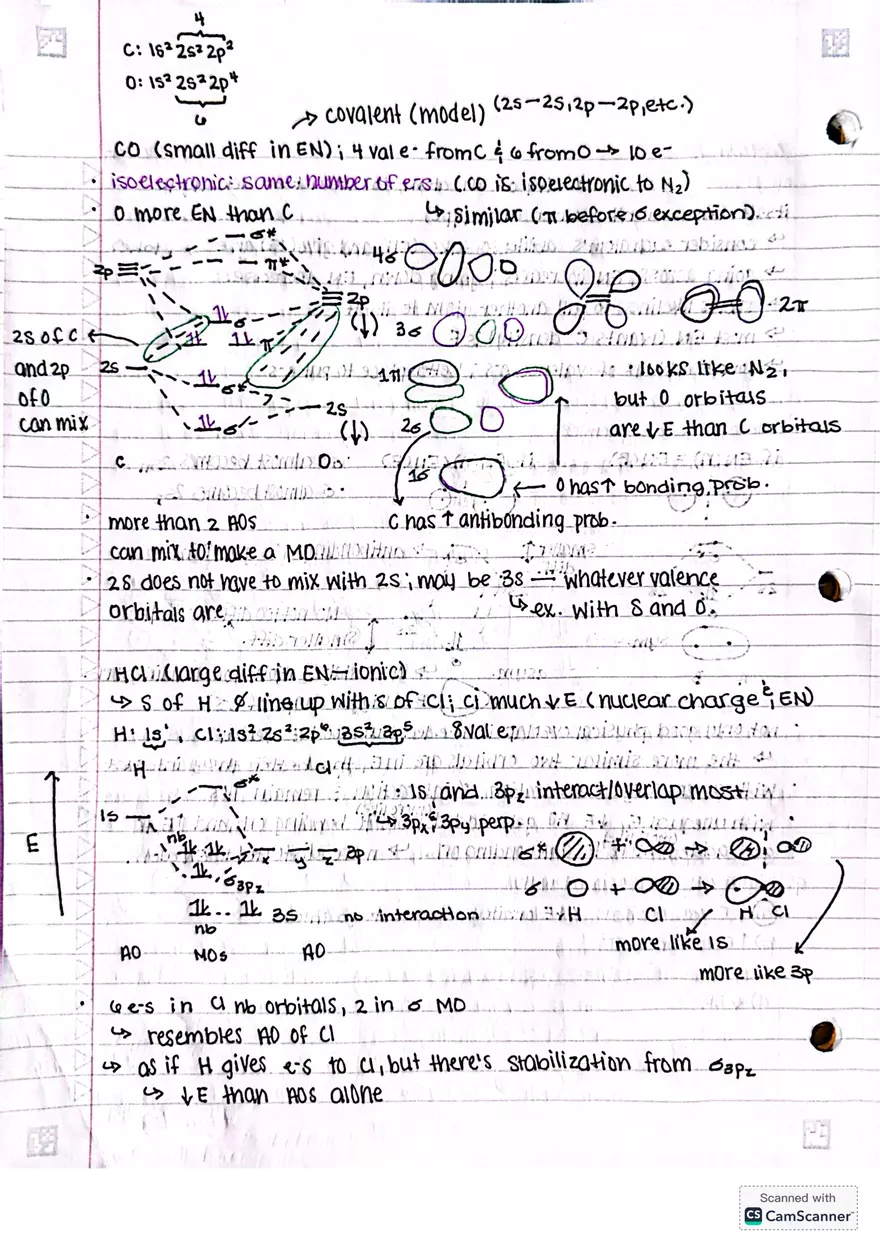 4
C: 1s² 2s² 2p²
O: 1s² 2s² 2p⁴
6
→ covalent (model) (2s-2s, 2p-2p, etc.)
CO (small diff in EN); 4 val e- from C & 6 from O → 10 e-
· isoelectronic: same number of e-s. (CO is isoelectronic to N₂)
· O more EN than C ↳ similar (π before σ exception).
σ*
2p π* 4σ
2p 2π
σ (↓) 3σ
2s of C ← π
and 2p 2s 1π · looks like N₂,
of O σ* but O orbitals
can mix 2s are ↓E than C orbitals
σ (↓) 2σ
C O 1σ ← O has ↑ bonding prob.
· more than 2 AOs C has ↑ antibonding prob.
can mix to make a MO
· 2s does not have to mix with 2s; may be 3s — whatever valence
orbitals are ↳ ex. with S and O.
HCl (large diff in EN - ionic)
↳ s of H line up with s of Cl; Cl much ↓E (nuclear charge & EN)
H: 1s¹, Cl: 1s² 2s² 2p⁶ 3s² 3p⁵ 8 val e-
H Cl
σ* · 1s and 3pz interact/overlap most
1s ↳ 3px & 3py perp.
E nb x y z 3p σ* + →
σ3pz σ + →
3s no interaction H Cl H Cl
nb more like 1s
AO MOs AO more like 3p
· 6 e-s in Cl nb orbitals, 2 in σ MO
↳ resembles AO of Cl
↳ as if H gives e-s to Cl, but there's stabilization from σ3pz
↳ ↓E than AOs alone
Scanned with
CS CamScanner